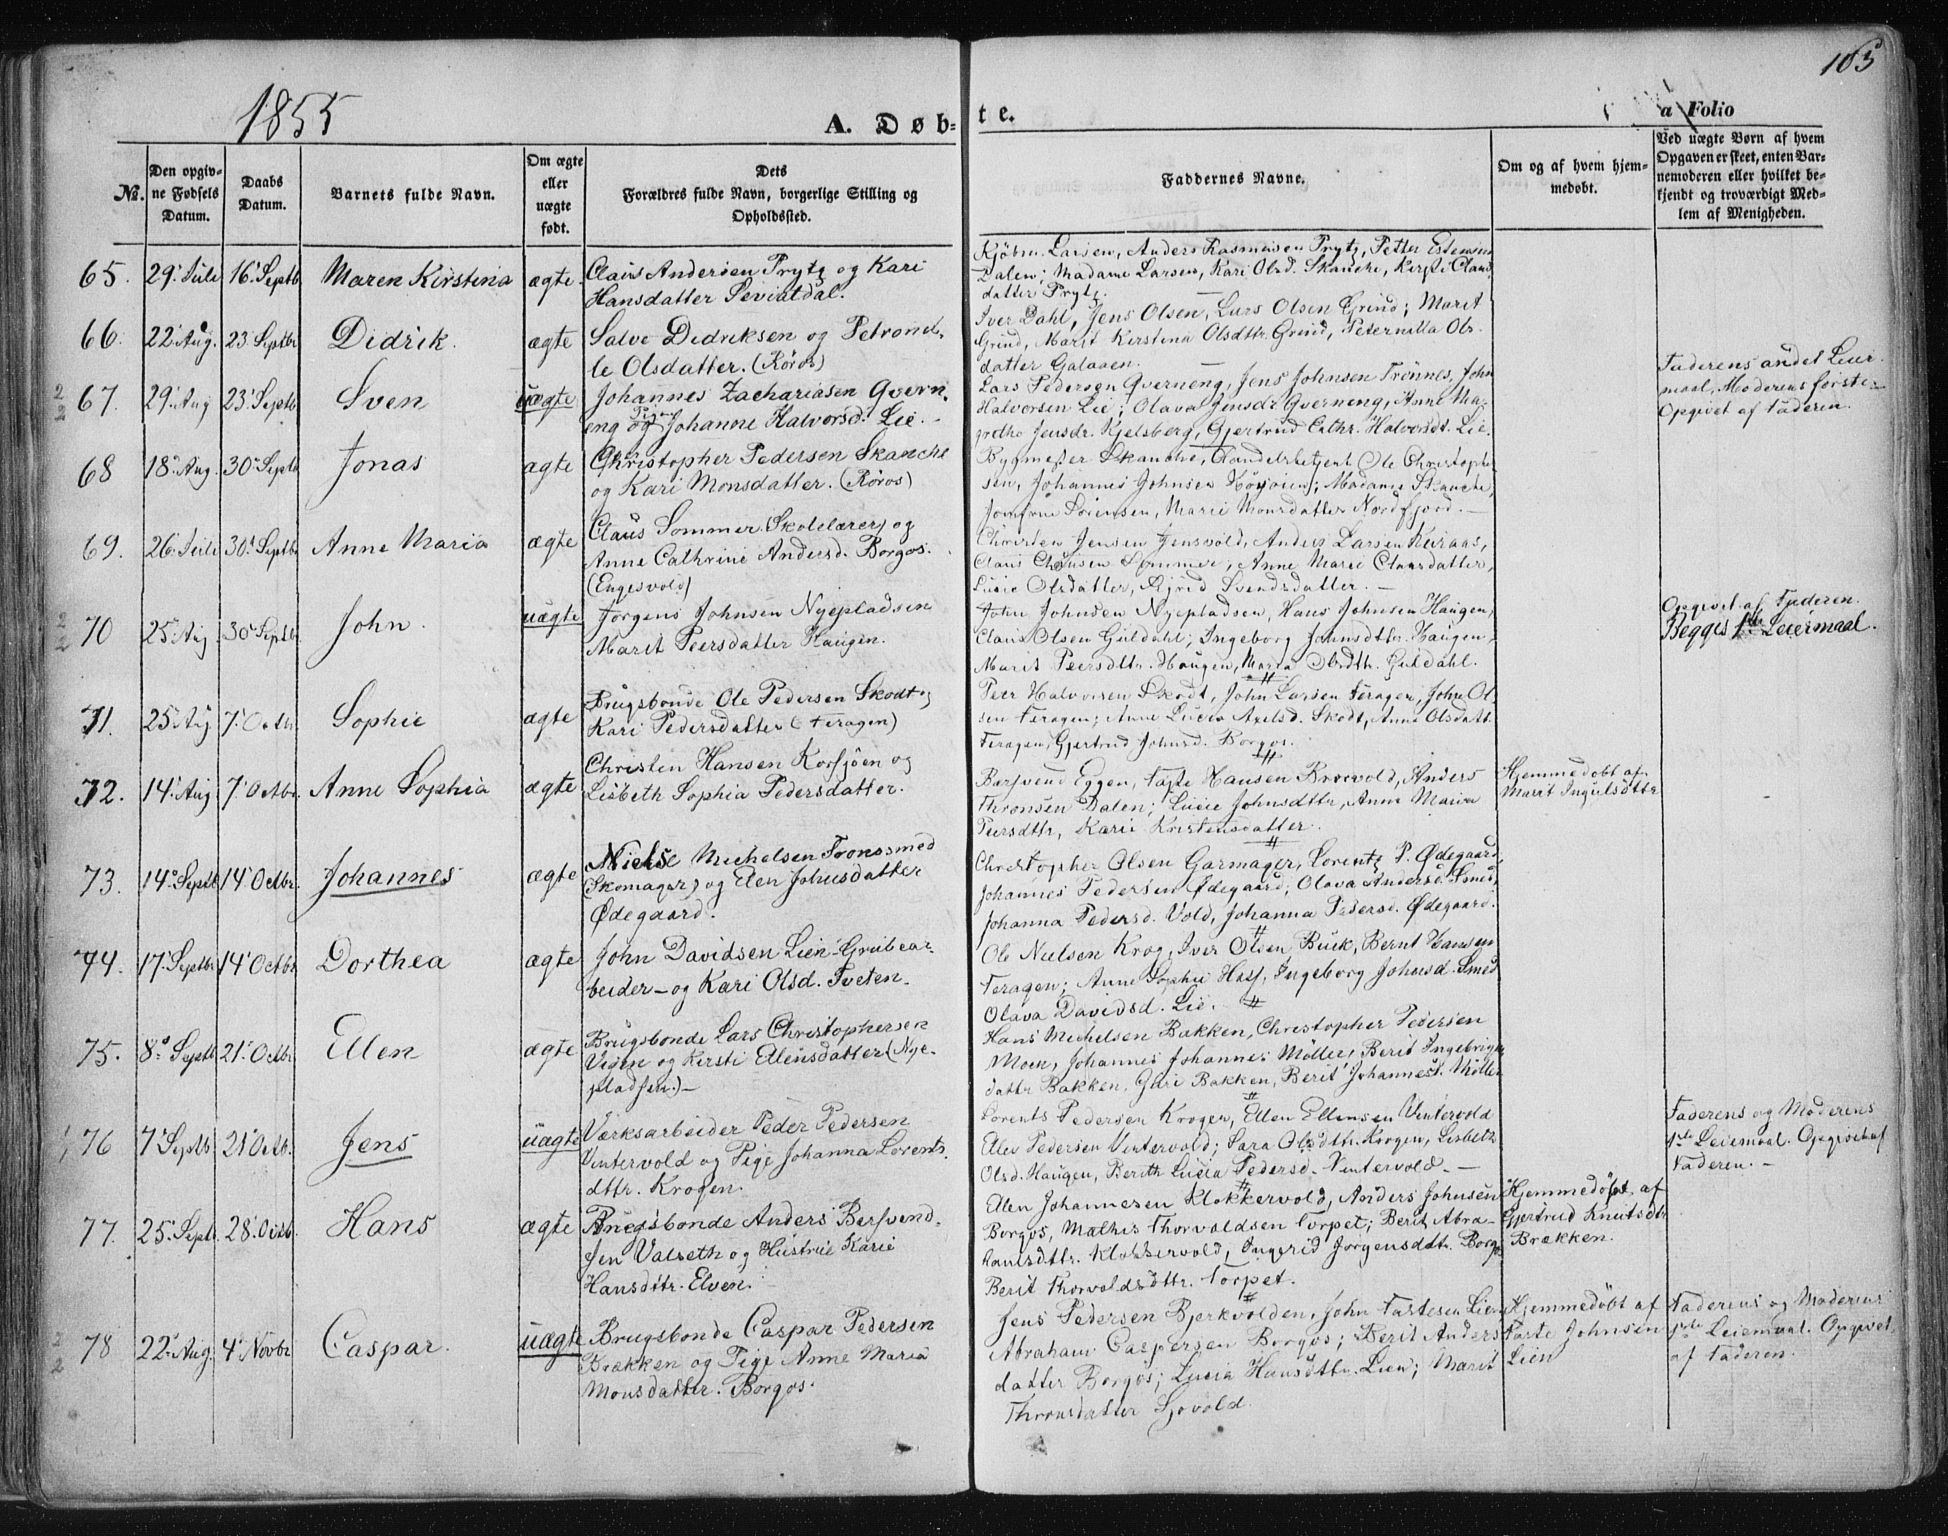 103
1855
A. Døb=
te.
a Folio
No.
Den opgiv-
ne Fødsels
Datum.
Daabs
Datum.
Barnets fulde Navn.
Om ægte
eller
uægte
født.
Dets
Forældres fulde Navn, borgerlige Stilling og
Opholdssted.
Faddernes Navne.
Om og af hvem hjem-
medøbt.
Ved uægte Børn af hvem
Opgaven er skeet, enten Bar-
nemoderen eller hvilket be-
kjendt og troværdigt Med-
lem af Menigheden.
65. 29. Juli 16. Septb. Maren Kirstina ægte.
Claus Andersen Prytz og Kari
Hansdatter Sevintdal.
Kjøbm. Larsen, Anders Rasmusen Prytz, Petter Estensen
Dalen; Madame Larsen, Kari Olsd. Skanche, Kirsti Claus
datter Prytz.
66. 22. Aug. 23. Septbr Didrik. ægte
Salve Dedriksen og Petronel-
le Olsdatter. (Röros)
Iver Dahl, Jens Olsen, Lars Olsen Grind; Marit
Grind, Marit Kirstina Olsdttr. Grind, Peternilla Ols-
datter Galaaen.
67. 29. Aug 23. Septb Sven uægte
Johannes Zachariasen Qvern-
eng og Pige Johanne Halvorsd. Lie.
Lars Pedersen Qverneng, Jens Johnsen Trönnes, John
Halvorsen Lie; Olava Jensdr Qverneng, Anne Ma-
grethe Jensdr. Kjelsberg, Gjertrud Cathr. Halvorsdt. Lie.
Faderens andet Leier-
maal, Moderens förste.
Opgivet af Faderen.
68 18. Aug. 30. Septb Jonas ægte
Christopher Pedersen Skanche
og Kari Monsdatter. (Röros)
Bygmester Skanche, Handelsbetjent Ole Christophe
sen, Johannes Johnsen Höyoien; Madame Skanche,
Jomfrue Sörensen, Marie Monsdatter Nordfjord.
69. 26. Juli 30. Septbr Anne Maria ægte
Claus Sommer (Skolelærer) og
Anne Cathrine Andersd. Borgos.
(Engesvold)
Christen Jensen Jensvold, Anders Larsen Kuraas,
Claus Clausen Sommer, Anne Marie Clausdatter,
Lucie Olsdatter, Sigrid Svendsdatter.
70 25. Aug. 30. Septb John. uægte
Jörgens Johnsen Nyepladsen
Marit Peersdatter Haugen.
John Johnsen Nyepladsen, Hans Johnsen Haugen,
Claus Olsen Guldahl; Ingeborg Johnsdttr. Haugen,
Marit Peersdttr. Haugen, Maria Olsdttr. Guldahl.
Opgivet af Faderen.
Begges 1ste Leiermaal.
71. 25. Aug 7. Octbr. Sophie ægte
Brugsbonde Ole Pedersen Skodt og
Kari Pedersdatter (Feragen)
Peer Halvorsen Skodt, John Larsen Feragen, John Ol-
sen Feragen; Anne Lucia Axelsd. Skodt, Anne Olsdatt.
Feragen, Gjertrud Johnsd. Borgos.
72. 14. Aug 7. Octbr. Anne Sophia ægte
Christen Hansen Korsjöen og
Lisbeth Sophia Pedersdatter.
Barsvend Eggen, Taste Hansen Brovold, Anders
Thronsen Dalen; Lucie Johnsdttr, Anne Maria
Peersdttr, Karii Kristensdatter.
Hjemmedöbt af
Marit Ingulsdttr
73. 14. Septb 14. Octbr. Johannes ægte
Niels Michelsen Tronssmed
(Skomager) og Elen Johusdatter
Ødegaard.
Christopher Olsen Garmager, Lorentz P. Ødegaard,
Johannes Pedersen Ødegaard; Olava Andersd. Smed,
Johanna Pedersd. Vold, Johanna Pedersd. Ødegaard.
74. 17. Septbr 14. Octbr Dorthea ægte
John Davidsen Lien Grubear-
beider - og Kari Olsd. Tveten.
Ole Nielsen Krog, Iver Olsen Buck, Bernt Hansen
Feragen; Anne Sophie Hass, Ingeborg Johnsd. Smed
Olava Davidsd. Lie.
75. 8. Septb 21. Octbr Ellen ægte
Brugsbonde Lars Christophersen
Vigen og Kirsti Elensdatter (Nye-
pladsen.)-
Hans Michelsen Bakken, Christopher Pedersen
Moen, Johannes Johannes Möller, Berit Ingebrigts
dattr Bakken, Guri Bakken, Berit Johannesd. Möller
76 7. Septb. 21. Octb. Jens uægte
Værksarbeider Peder Pedersen
Vintervold og Pige Johanna Lorents-
dttr. Krogen.
Lorents Pedersen Kroger, Ellen Ellensen Vintervold
Elev Pedersen Vintervold; Sara Olsdttr. Krogen, Lisbeth
Olsd. Haugen, Berith Lucia Pedersd. Vintervold.
Faderens og Moderens
1ste Leiermaal. Opgivet af
Faderen. -
77. 25. Septb. 28. Octb. Hans ægte
Brugsbonde Anders Bersvend-
sen Valseth og Hustrue Karie
Hansdttr. Elven.
Elen Johannesen Klokkervold, Anders Johnsen
Borgos, Mathis Thorvaldsen Torpet; Berit Abra-
hamsdttr. Klokkervold, Ingerid Jörgensdttr. Borgos
Berit Thorvoldsdttr. Torpet.
Hjemmedöbt af
Gjertrud Knutsdtr
Brækken.
78 22. Aug. 4. Novbr Caspar. uægte
Brugsbonde Caspar Pedersen
Brækken og Pige Anne Maria
Monsdatter. Borgos.
Jens Pedersen Bjerkvolden, John Tastesen Lien
Abraham Caspersen Borgos; Berit Anders
datter Borgos; Lucia Hansdttr. Lien; Marit
Thronsdatter Sjovold.
Hjemmedöbt af
Taste Johnsen
Lien
Faderens og Moderens
1ste Leiermaal. Opgivet
af Faderen.